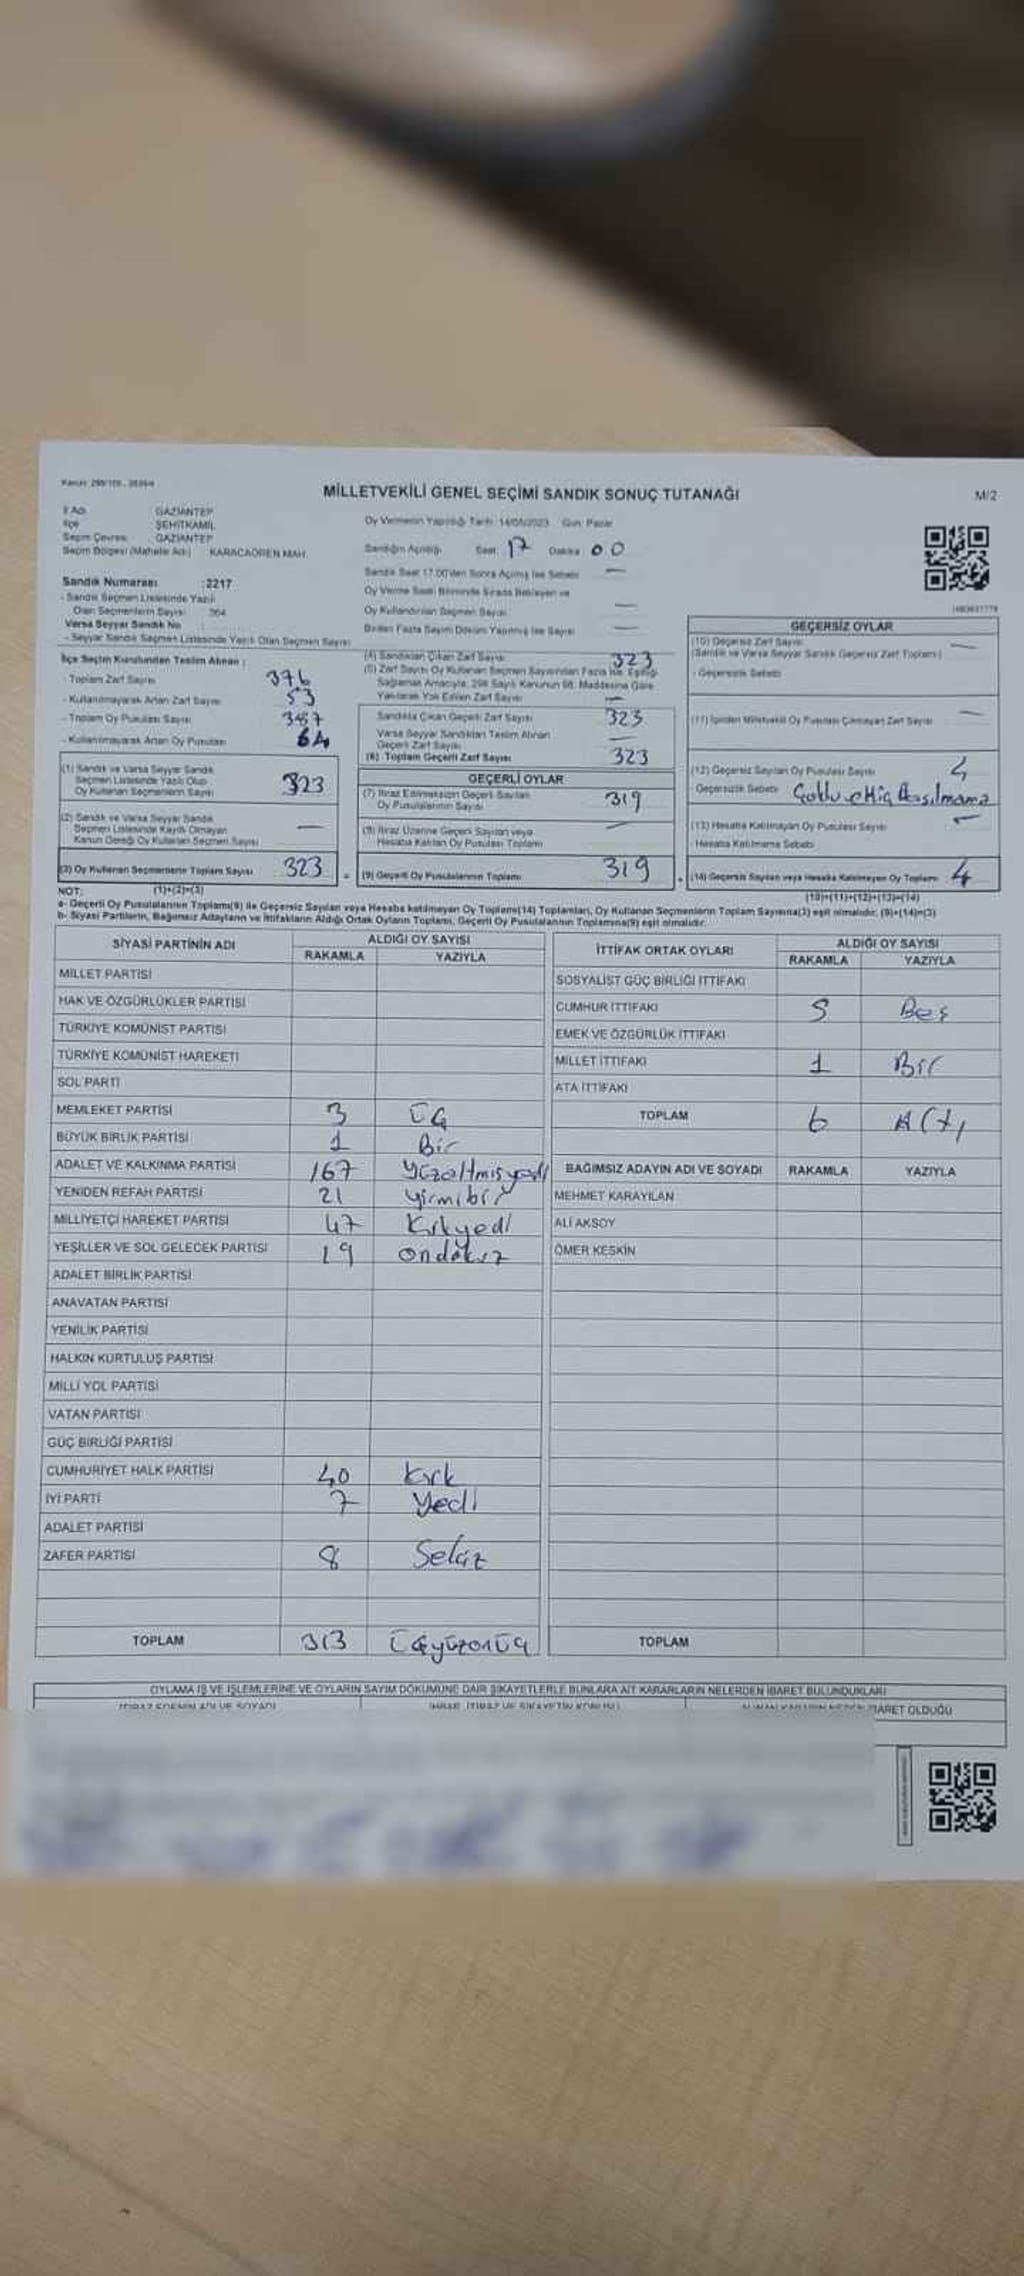 MİLLETVEKİLİ GENEL SEÇİMİ SANDIK SONUÇ TUTANAĞI
M/2
İl Adı GAZİANTEP
İlçe ŞEHİTKAMİL
Seçim Çevresi GAZİANTEP
Seçim Bölgesi (Mahalle Adı) KARACAÖREN MAH.
Sandık Numarası :2217
- Sandık Seçmen Listesinde Yazılı
Olan Seçmenlerin Sayısı 364
Varsa Seyyar Sandık No
- Seyyar Sandık Seçmen Listesinde Yazılı Olan Seçmen Sayısı
Oy Vermenin Yapıldığı Tarih: 14/05/2023 Gün: Pazar
Sandığın Açıldığı Saat: 17 Dakika 00
Sandık Saat 17.00'den Sonra Açılmış İse Sebebi —
Oy Verme Saati Bitiminde Sırada Bekleyen ve
Oy Kullandırılan Seçmen Sayısı —
Birden Fazla Sayım Döküm Yapılmış İse Sayısı —
İlçe Seçim Kurulundan Teslim Alınan :
- Toplam Zarf Sayısı 376
- Kullanılmayarak Artan Zarf Sayısı 53
- Toplam Oy Pusulası Sayısı 387
- Kullanılmayarak Artan Oy Pusulası 64
(1) Sandık ve Varsa Seyyar Sandık
Seçmen Listesinde Yazılı Olup
Oy Kullanan Seçmenlerin Sayısı 323
(2) Sandık ve Varsa Seyyar Sandık
Seçmen Listesinde Kayıtlı Olmayan
Kanun Gereği Oy Kullanan Seçmen Sayısı —
(3) Oy Kullanan Seçmenlerin Toplam Sayısı 323
(1)+(2)=(3)
(4) Sandıktan Çıkan Zarf Sayısı 323
(5) Zarf Sayısı Oy Kullanan Seçmen Sayısından Fazla İse, Eşitliği
Sağlamak Amacıyla, 298 Sayılı Kanunun 98. Maddesine Göre
Yakılarak Yok Edilen Zarf Sayısı —
Sandıkta Çıkan Geçerli Zarf Sayısı 323
Varsa Seyyar Sandıktan Teslim Alınan
Geçerli Zarf Sayısı —
(6) Toplam Geçerli Zarf Sayısı 323
GEÇERLİ OYLAR
(7) İtiraz Edilmeksizin Geçerli Sayılan
Oy Pusulalarının Sayısı 319
(8) İtiraz Üzerine Geçerli Sayılan veya
Hesaba Katılan Oy Pusulası Toplamı —
(9) Geçerli Oy Pusulalarının Toplamı 319
GEÇERSİZ OYLAR
(10) Geçersiz Zarf Sayısı
(Sandık ve Varsa Seyyar Sandık Geçersiz Zarf Toplamı) —
- Geçersizlik Sebebi
(11) İçinden Milletvekili Oy Pusulası Çıkmayan Zarf Sayısı —
(12) Geçersiz Sayılan Oy Pusulası Sayısı 4
Geçersizlik Sebebi
(13) Hesaba Katılmayan Oy Pusulası Sayısı —
Hesaba Katılmama Sebebi
(14) Geçersiz Sayılan veya Hesaba Katılmayan Oy Toplamı 4
(10)+(11)+(12)+(13)=(14)
NOT:
a- Geçerli Oy Pusulalarının Toplamı(9) ile Geçersiz Sayılan veya Hesaba katılmayan Oy Toplamı(14) Toplamları, Oy Kullanan Seçmenlerin Toplam Sayısına(3) eşit olmalıdır. (9)+(14)=(3)
b- Siyasi Partilerin, Bağımsız Adayların ve İttifakların Aldığı Ortak Oyların Toplamı, Geçerli Oy Pusulalarının Toplamına(9) eşit olmalıdır.
SİYASİ PARTİNİN ADI ALDIĞI OY SAYISI
RAKAMLA YAZIYLA
MİLLET PARTİSİ
HAK VE ÖZGÜRLÜKLER PARTİSİ
TÜRKİYE KOMÜNİST PARTİSİ
TÜRKİYE KOMÜNİST HAREKETİ
SOL PARTİ
MEMLEKET PARTİSİ 3 ÜÇ
BÜYÜK BİRLİK PARTİSİ 1 Bir
ADALET VE KALKINMA PARTİSİ 167 Yüzaltmışyedi
YENİDEN REFAH PARTİSİ 21 yirmibir
MİLLİYETÇİ HAREKET PARTİSİ 47 Kırkyedi
YEŞİLLER VE SOL GELECEK PARTİSİ 19 ondokuz
ADALET BİRLİK PARTİSİ
ANAVATAN PARTİSİ
YENİLİK PARTİSİ
HALKIN KURTULUŞ PARTİSİ
MİLLİ YOL PARTİSİ
VATAN PARTİSİ
GÜÇ BİRLİĞİ PARTİSİ
CUMHURİYET HALK PARTİSİ 40 Kırk
İYİ PARTİ 7 Yedi
ADALET PARTİSİ
ZAFER PARTİSİ 8 Sekiz
TOPLAM 313 Üçyüzonüç
İTTİFAK ORTAK OYLARI ALDIĞI OY SAYISI
RAKAMLA YAZIYLA
SOSYALİST GÜÇ BİRLİĞİ İTTİFAKI
CUMHUR İTTİFAKI 5 Beş
EMEK VE ÖZGÜRLÜK İTTİFAKI
MİLLET İTTİFAKI 1 Bir
ATA İTTİFAKI
TOPLAM 6 Altı
BAĞIMSIZ ADAYIN ADI VE SOYADI RAKAMLA YAZIYLA
MEHMET KARAYILAN
ALİ AKSOY
ÖMER KESKİN
TOPLAM
OYLAMA İŞ VE İŞLEMLERİNE VE OYLARIN SAYIM DÖKÜMÜNE DAİR ŞİKAYETLERLE BUNLARA AİT KARARLARIN NELERDEN İBARET BULUNDUKLARI
İBARET OLDUĞU